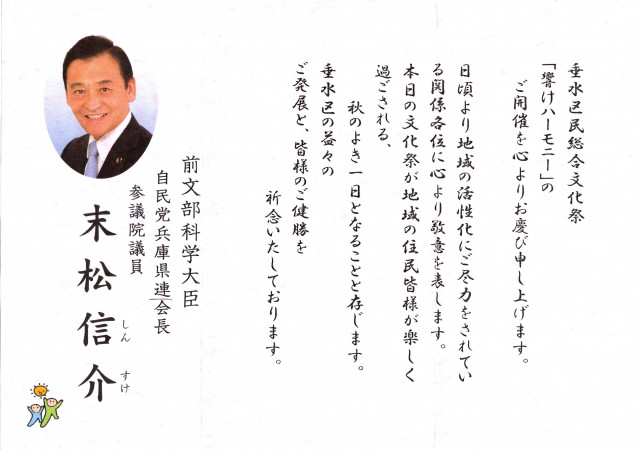 垂水区民総合文化祭
「響けハーモニー」の
ご開催を心よりお慶び申し上げます。
日頃より地域の活性化にご尽力をされてい
る関係各位に心より敬意を表します。
本日の文化祭が地域の住民皆様が楽しく
過ごされる、
秋のよき一日となることと存じます。
垂水区の益々の
ご発展と、皆様のご健勝を
祈念いたしております。
前文部科学大臣
自民党兵庫県連会長
参議院議員
末松信介
しん すけ